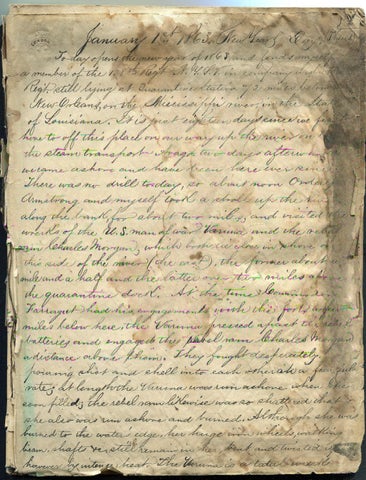 January 1st 1863. New Years Day
To day opens the new year of 1863 and finds myself
a member of the Regt. N.Y.S.V. in company
Regt. still lying at Quarantine Station 75 miles below
New Orleans, on the Mississippi river, in the State
of Louisiana. It is just eight days since we
hove to off this place on our way up the river on
the steam transport two days afterward
we came ashore and have been here ever since.
There was no drill to day, so about noon Orderly
Armstrong and myself took a stroll up the river
along the bank for about two miles, and visited the
wrecks of the U.S. man of war Varuna and the rebel
ram Charles Morgan, which both lie close in shore on
this side of the river (the east), the former about a
mile and a half and the latter one two miles above
the quarantine dock. At the time Commodore
Farragut had his engagement with the forts, a few
miles below here, the Varuna pressed apast the rebel
batteries and engaged the rebel ram Charles Morgan
a distance above them. They fought desperately
pouring shot and shell into each other at a fearful
rate; at length the Varuna was run ashore when she
soon filled; the rebel ram likewise was so shattered that
she also was run ashore and burned. Although she was
burned to the water edge, her large iron wheels, walking
beam, shafts &c still remain in her, bent and twisted
however by intense heat. The Varuna is a later vessel